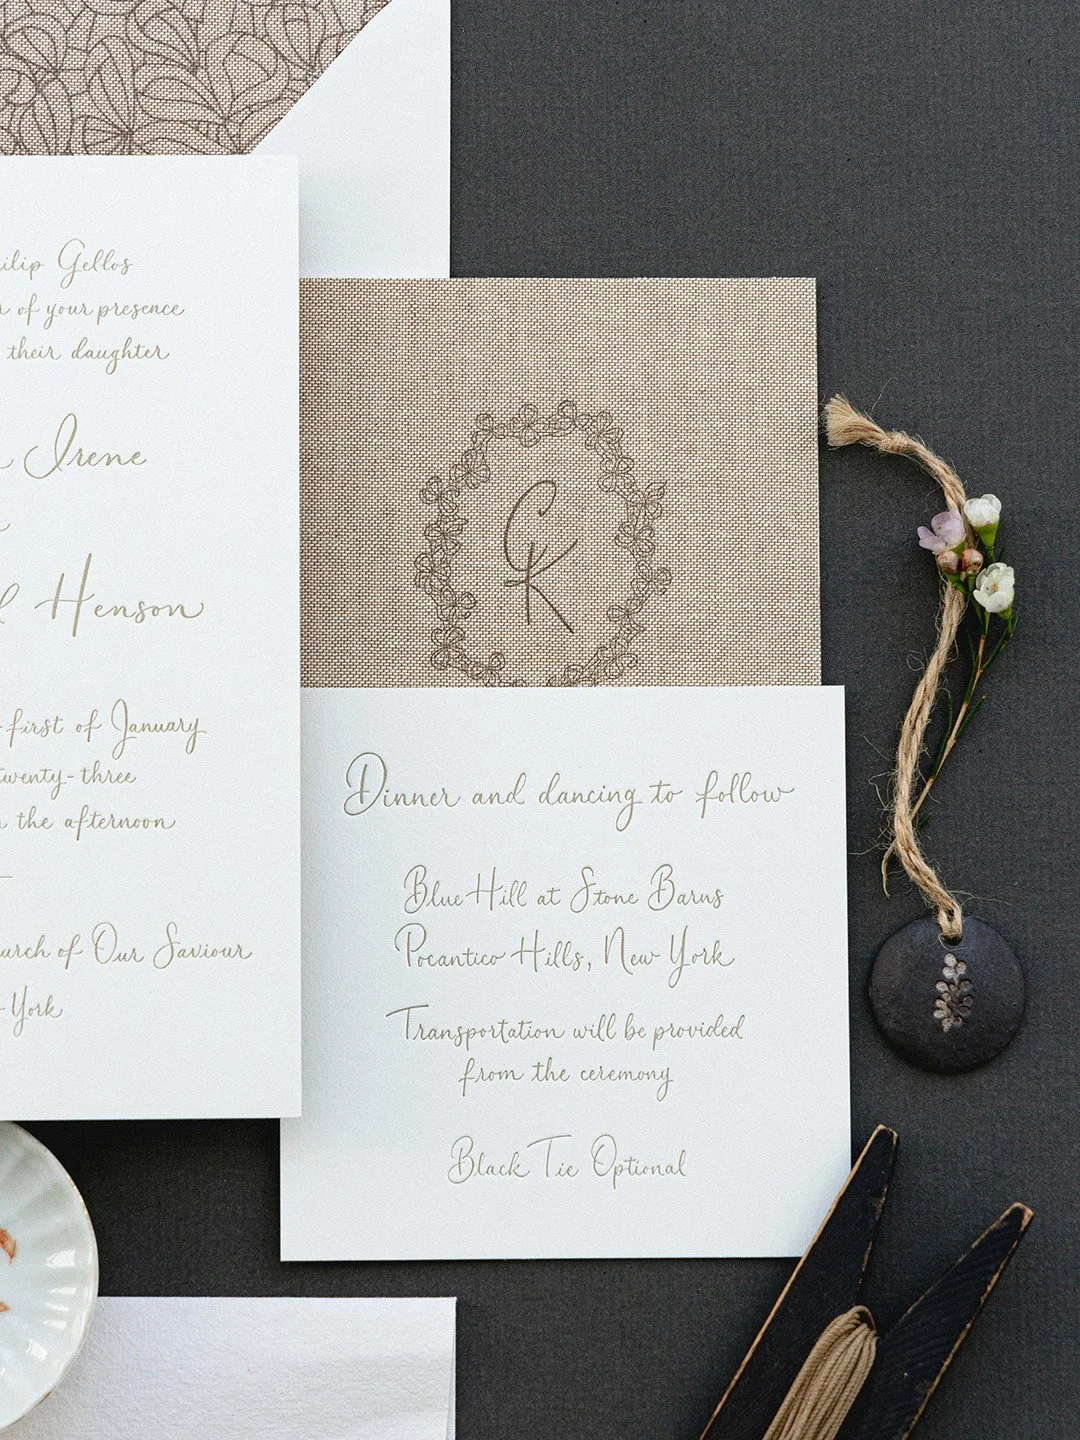 Gellos
of your presence
their daughter
Irene
Henson
first of January
twenty-three
the afternoon
of Our Saviour
York
C
K
Dinner and dancing to follow
Blue Hill at Stone Barns
Pocantico Hills, New York
Transportation will be provided
from the ceremony
Black Tie Optional